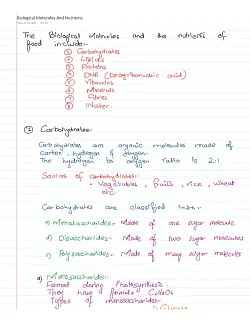 Biological Molecules And Nutrients
The Biological Molecules and the nutrients of
food include:-
① Carbohydrates
② Lipids
③ Proteins
④ DNA (Deoxyribonucleic acid)
⑤ Vitamins
⑥ Minerals
⑦ Fibres
⑧ Water.
① Carbohydrates:-
Carbohydrates are organic molecules made of
carbon, hydrogen & oxygen.
The hydrogen to oxygen ratio is 2:1
Sources of carbohydrates:-
• Vegetables, fruits, rice, wheat
etc.
Carbohydrates are classified into:-
a) Monosaccharides:- Made of one sugar molecule
b) Disaccharides:- Made of two sugar molecules
c) Polysaccharides:- Made of many sugar molecules
a) Monosaccharides:-
Formed during Photosynthesis.
They have formula C₆H₁₂O₆
Types of monosaccharides:-